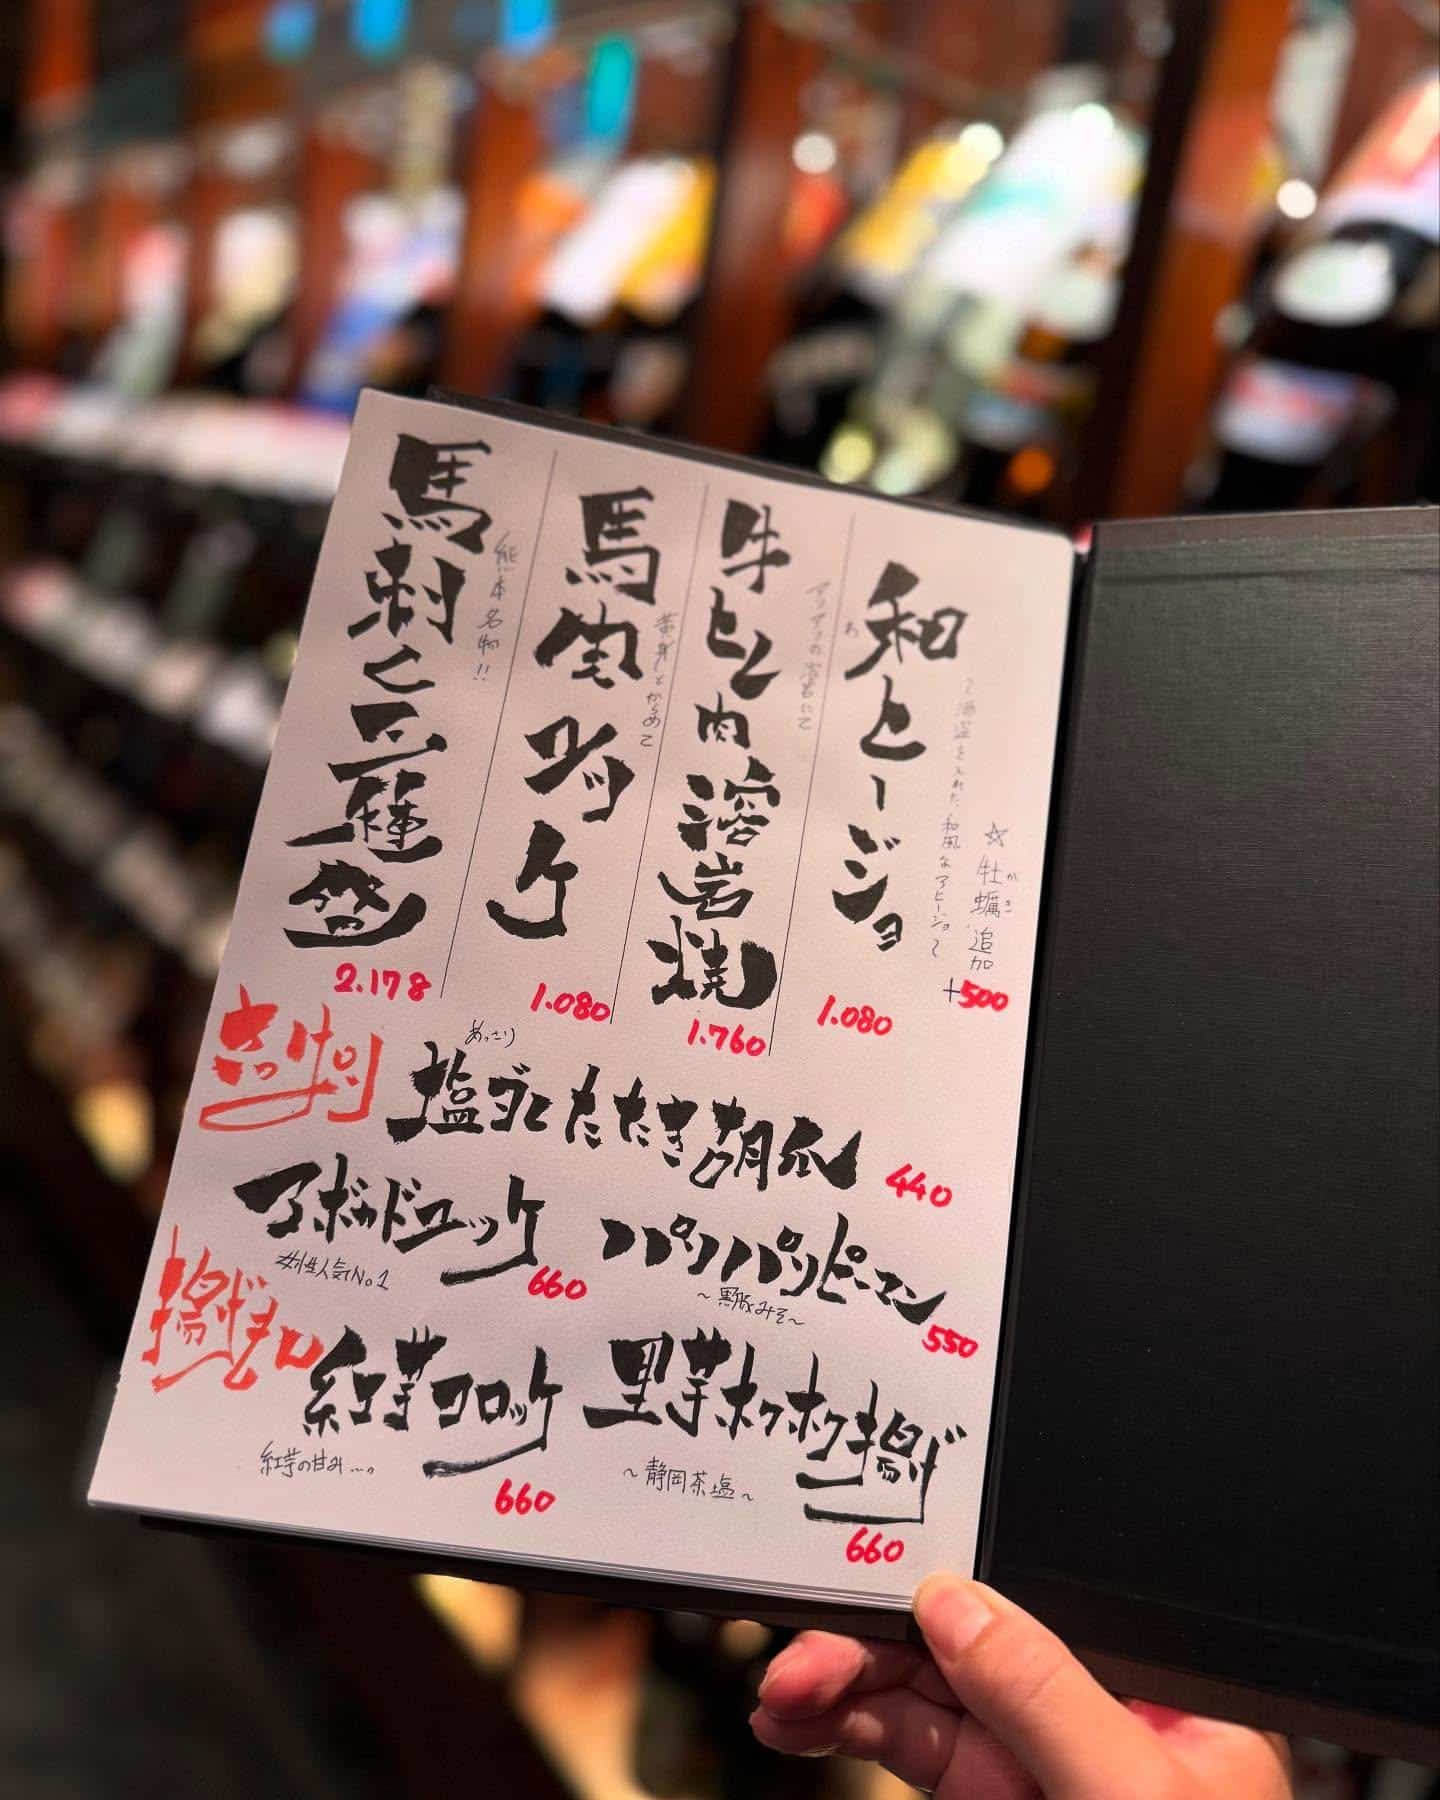 和とージョ
わ
～海塩を入れた、和風なアヒージョ～
☆牡蠣追加
かき
+500
1.080
牛ヒレ肉溶岩焼
アツアツの溶岩にて
1.760
馬肉ユッケ
黄身とからめて
1.080
馬刺し三種盛
熊本名物!!
2.178
さっけロン
あっさり
塩ダレたたき胡瓜
440
アボカドユッケ
女性人気No.1
660
パリパリピーマン
～黒豚みそ～
550
揚げもん
紅芋コロッケ
紅芋の甘み…。
660
里芋ホクホク揚げ
～静岡茶塩～
660